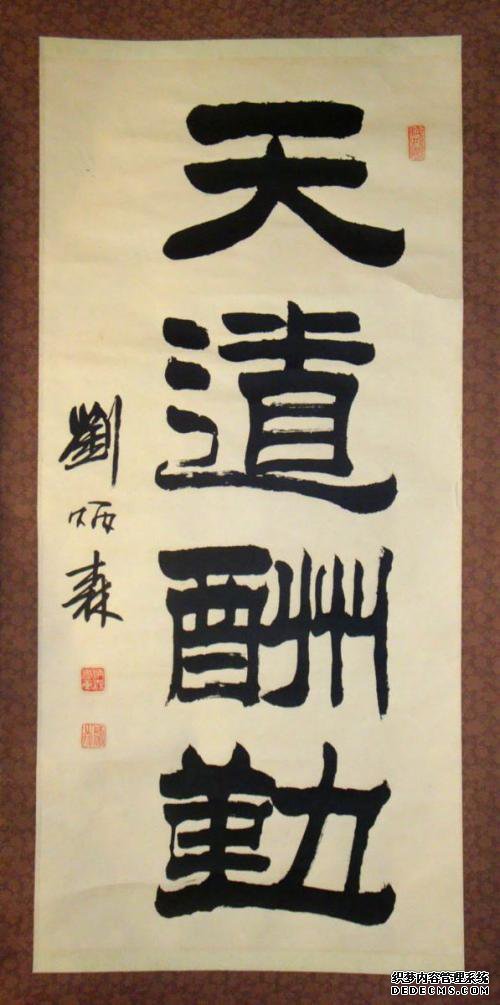 天道酬勤
劉炳森
织梦内容管理系统
DEDECMS.COM